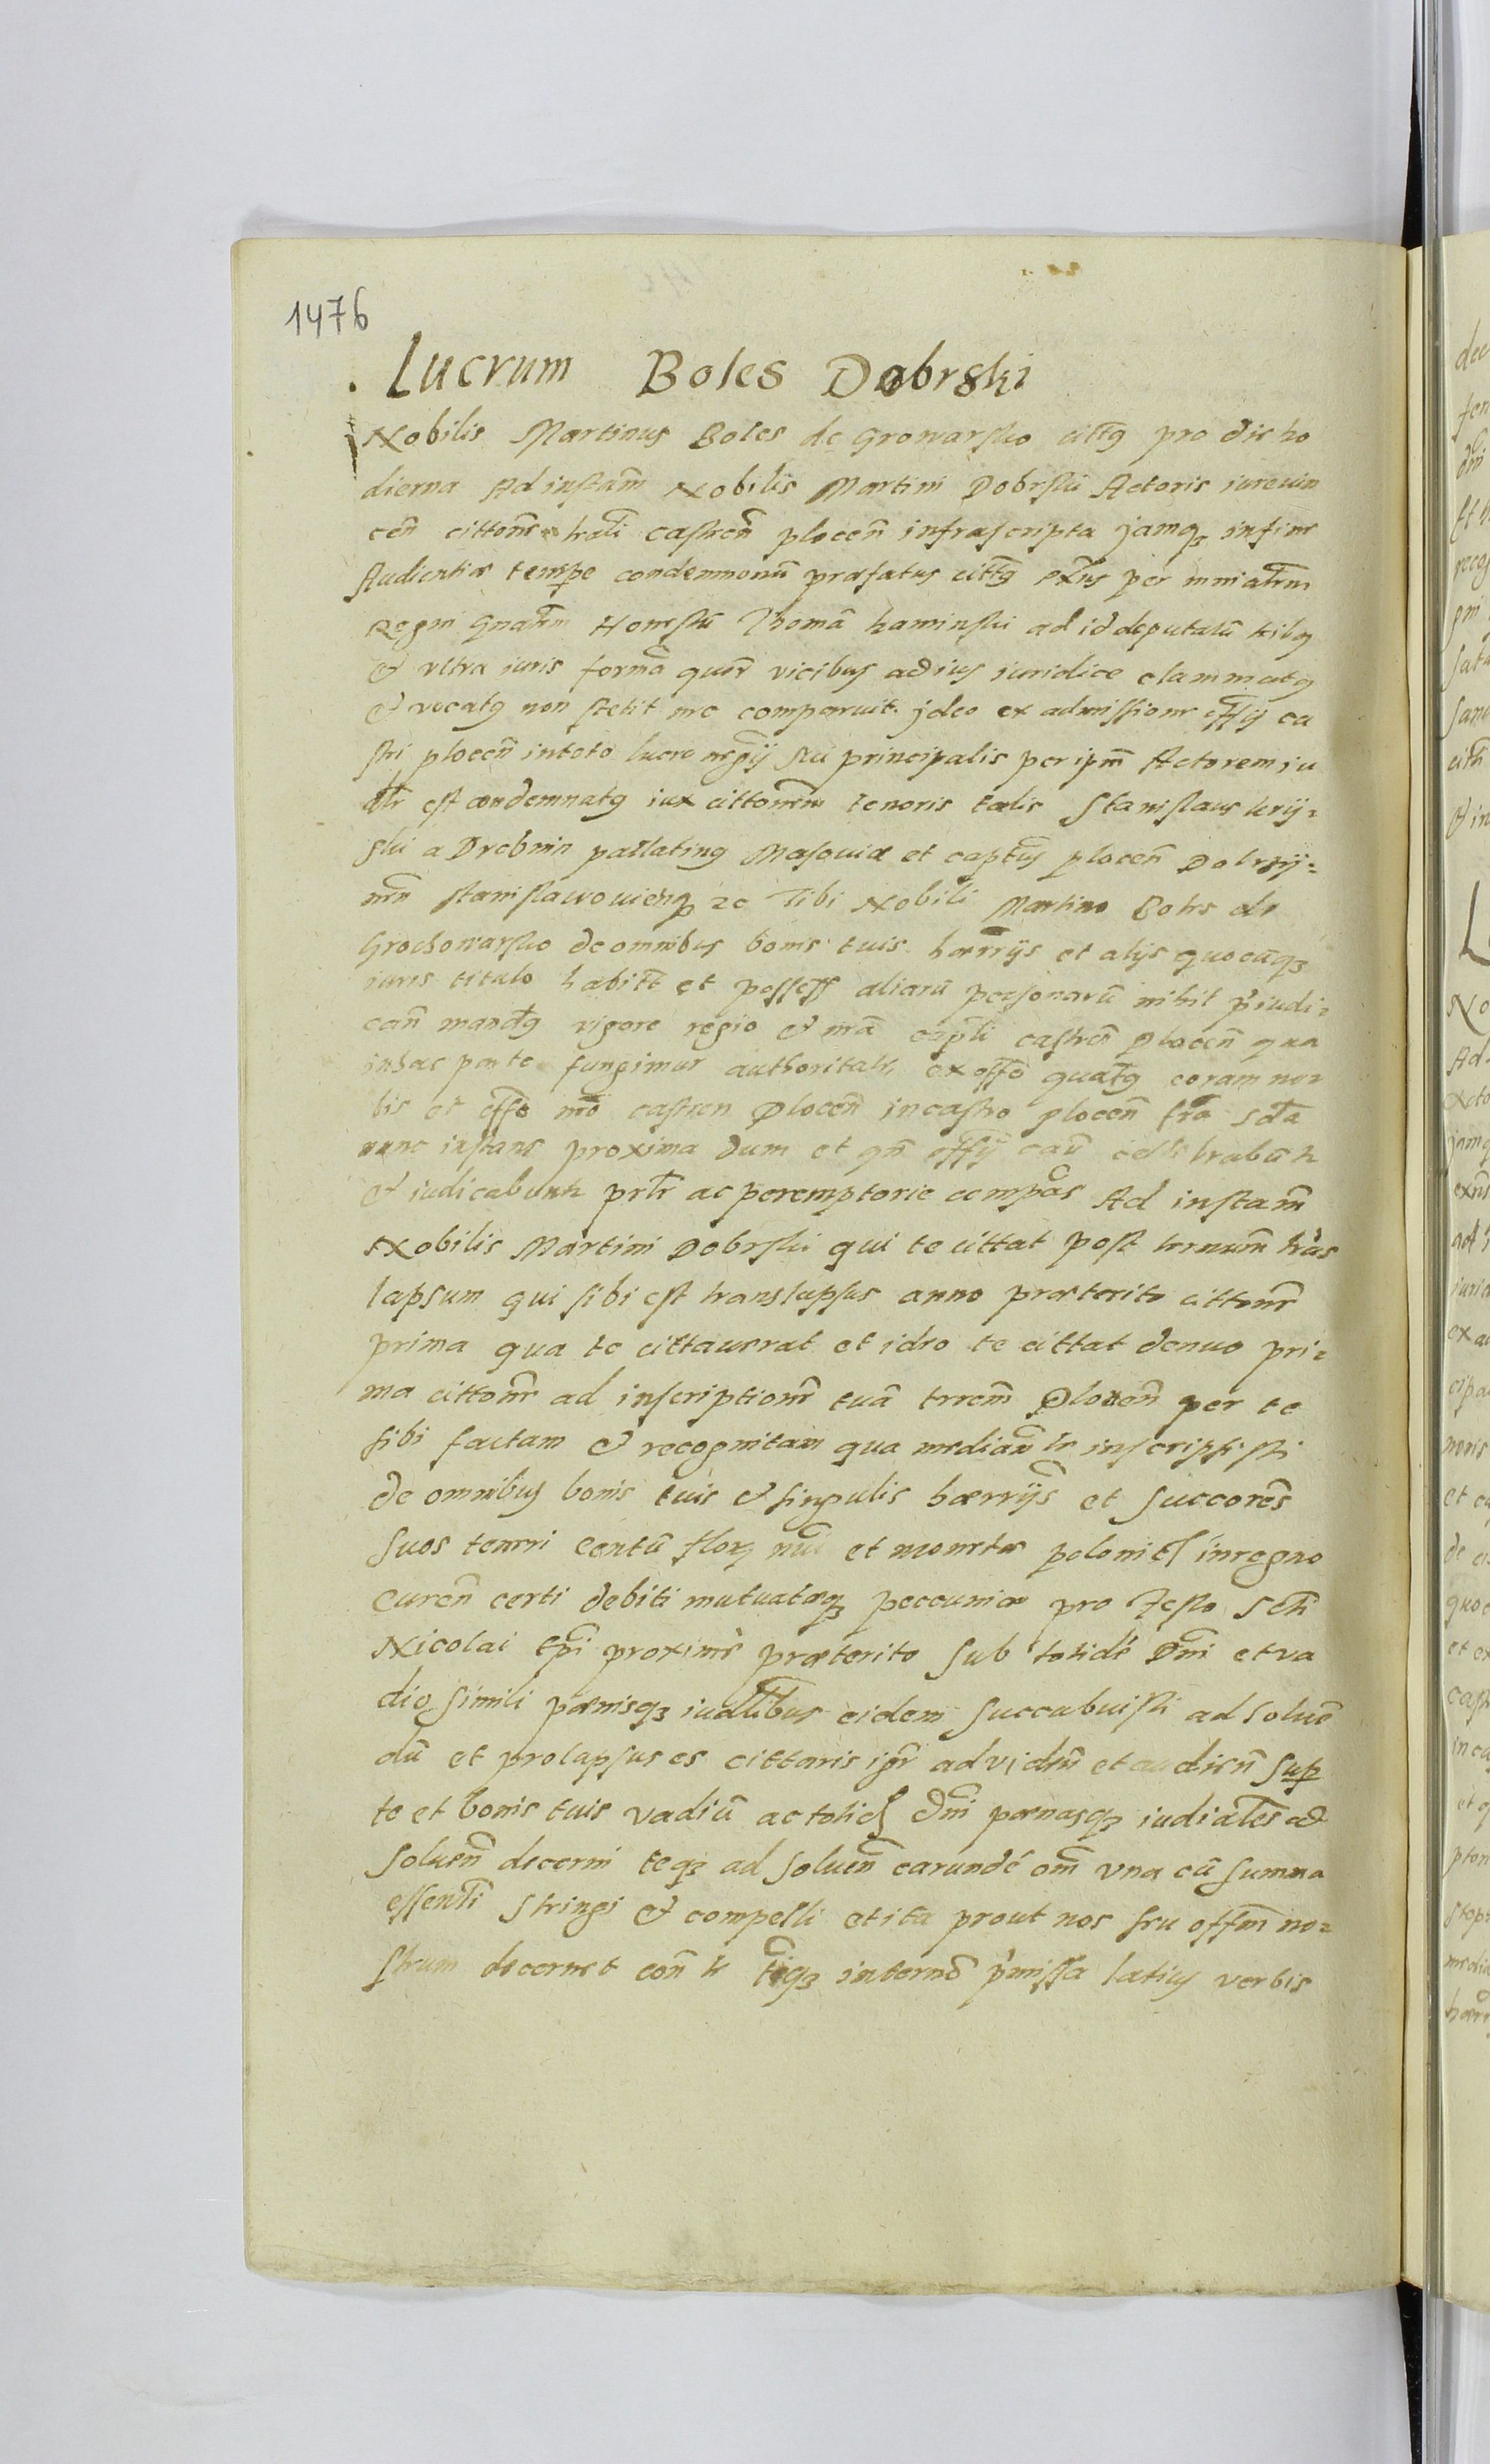 1476
Lucrum Boles Dobrski
Nobilis Martinus Boles de Growarsko cittꝯ pro die ho
dierna Ad instam̃ Nobilis Martini Dobrski Actoris iurevin
cen̄ cittone castren̄ plocen̄ infrascripta jamqꝫ in fine
Audientiæ tempe condemnonū præfatus cittꝯ per
Regni Gnalem Honestū Thomā Kaminski ad id deputatū
& vltra iuris formā quer vicibus ad ius iuridice clammatꝯ
& vocatꝯ non stetit nec comparuit. jdeo ex admissione offij ca
stri plocen̄ in toto lucro negij sui principalis per ipm̄ Actorem iu
dlr est condemnatꝯ iux cittonem tenoris talis Stanislaus Kryj=
ski a Drobnin pallatinꝯ Masouiæ et captus plocen̄ Dobrzij=
nen Tibi Nobili Martino Boles de
Grochowarsko de omnibus bonis tuis hærrijs et alijs quocūqꝫ
iuris titulo habitis et possess aliarū personarū nihil p̄iudi=
can̄ mandꝯ vigore regio & nrā capli castren̄ Plocen̄ qua
in hac parte fungimur authoritate, ex offo quatꝯ coram no=
bis et offo nro castren Plocen̄ in castro plocen̄ fria sda
nunc instans proxima dum et qn̄ offij cau celebrabunt
& iudicabunt prlr ac peremptorie compās Ad instam̄
Nobilis Martini Dobrski qui te cittat post
lapsum qui sibi est translapsus anno præterito cittone
prima qua te cittauerat et ideo te cittat denuo pri=
ma cittone ad inscriptione tuā trrem̄ Plocen̄ per te
sibi factam & recognitam qua mediante inscripsisti
de omnibus bonis tuis & singulis hærrijs et succores
suos teneri Centū flor et monetæ polonicl in regno
Curen̄ certi debiti mutuatæqꝫ peccuniæ pro Festo Scti
Nicolai Epi proxime præterito sub totidē Dni et va
dio simili pænisqꝫ iudlibus eidem succubuisti ad soluē
dū et prolapsus es cittaris igr ad viden̄ et audien̄ sup
te et bonis tuis vadiū ac totid dni pænasqꝫ iudiales ad
soluen̄ decerni teqꝫ ad soluen̄ earundē om̄ vna cū summa
essenli stringi & compelli et ita prout nos seu offm̄ no=
strum decernet p̄missa latius verbis